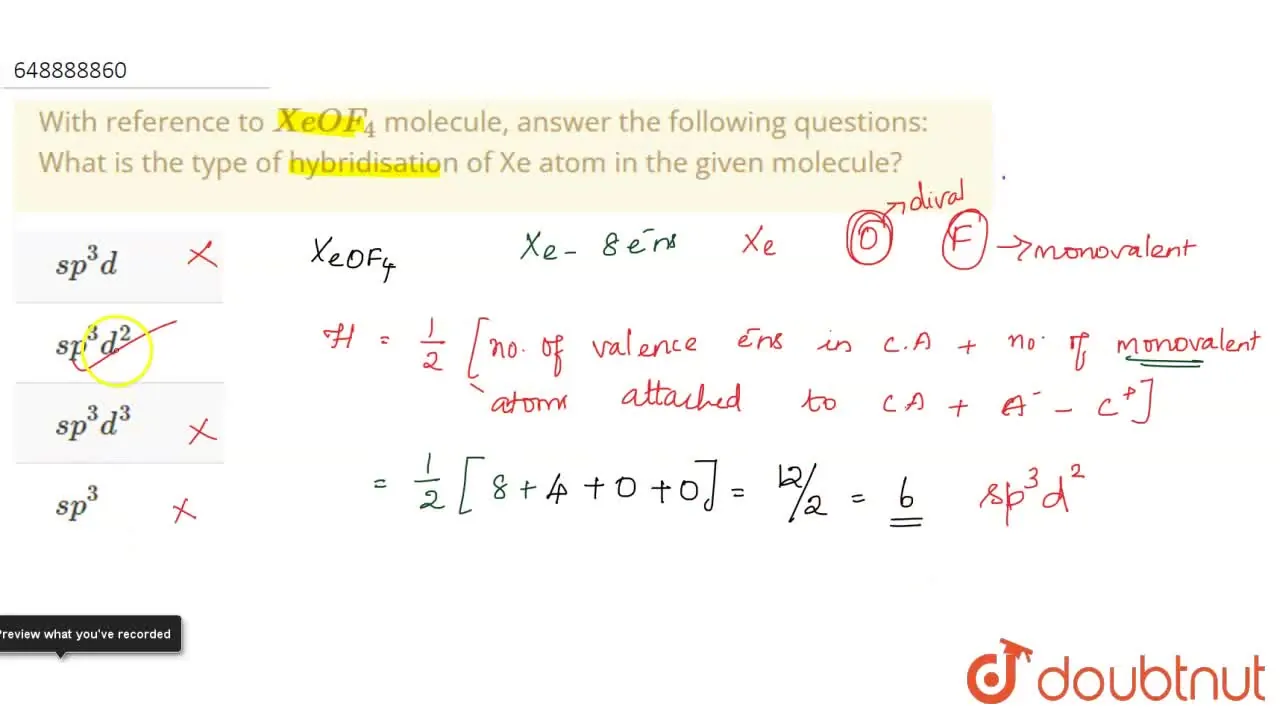 648888860
With reference to XeOF₄ molecule, answer the following questions:
What is the type of hybridisation of Xe atom in the given molecule?
sp³d ×
sp³d²
sp³d³ ×
sp³ ×
XeOF₄ Xe – 8 ēns Xe O → dival F → monovalent
H = 1/2 [no. of valence ēns in C.A + no. of monovalent
atoms attached to CA + A⁻ – C⁺]
= 1/2 [8 + 4 + 0 + 0] = 12/2 = 6 sp³d²
Preview what you've recorded
doubtnut